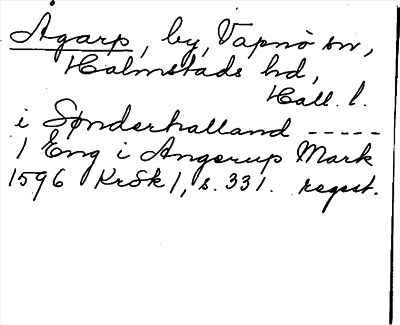 Ågarp, by, Vapnö sn,
Halmstads hd,
Hall. l.
i Sønderhalland -----
1 Eng i Angerup Mark
1596 KrSk 1, s. 331. regest.